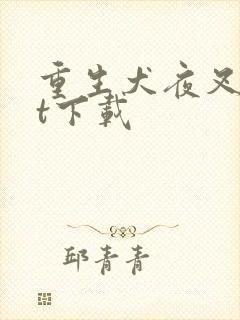 重生犬夜叉
t下载
邱青青